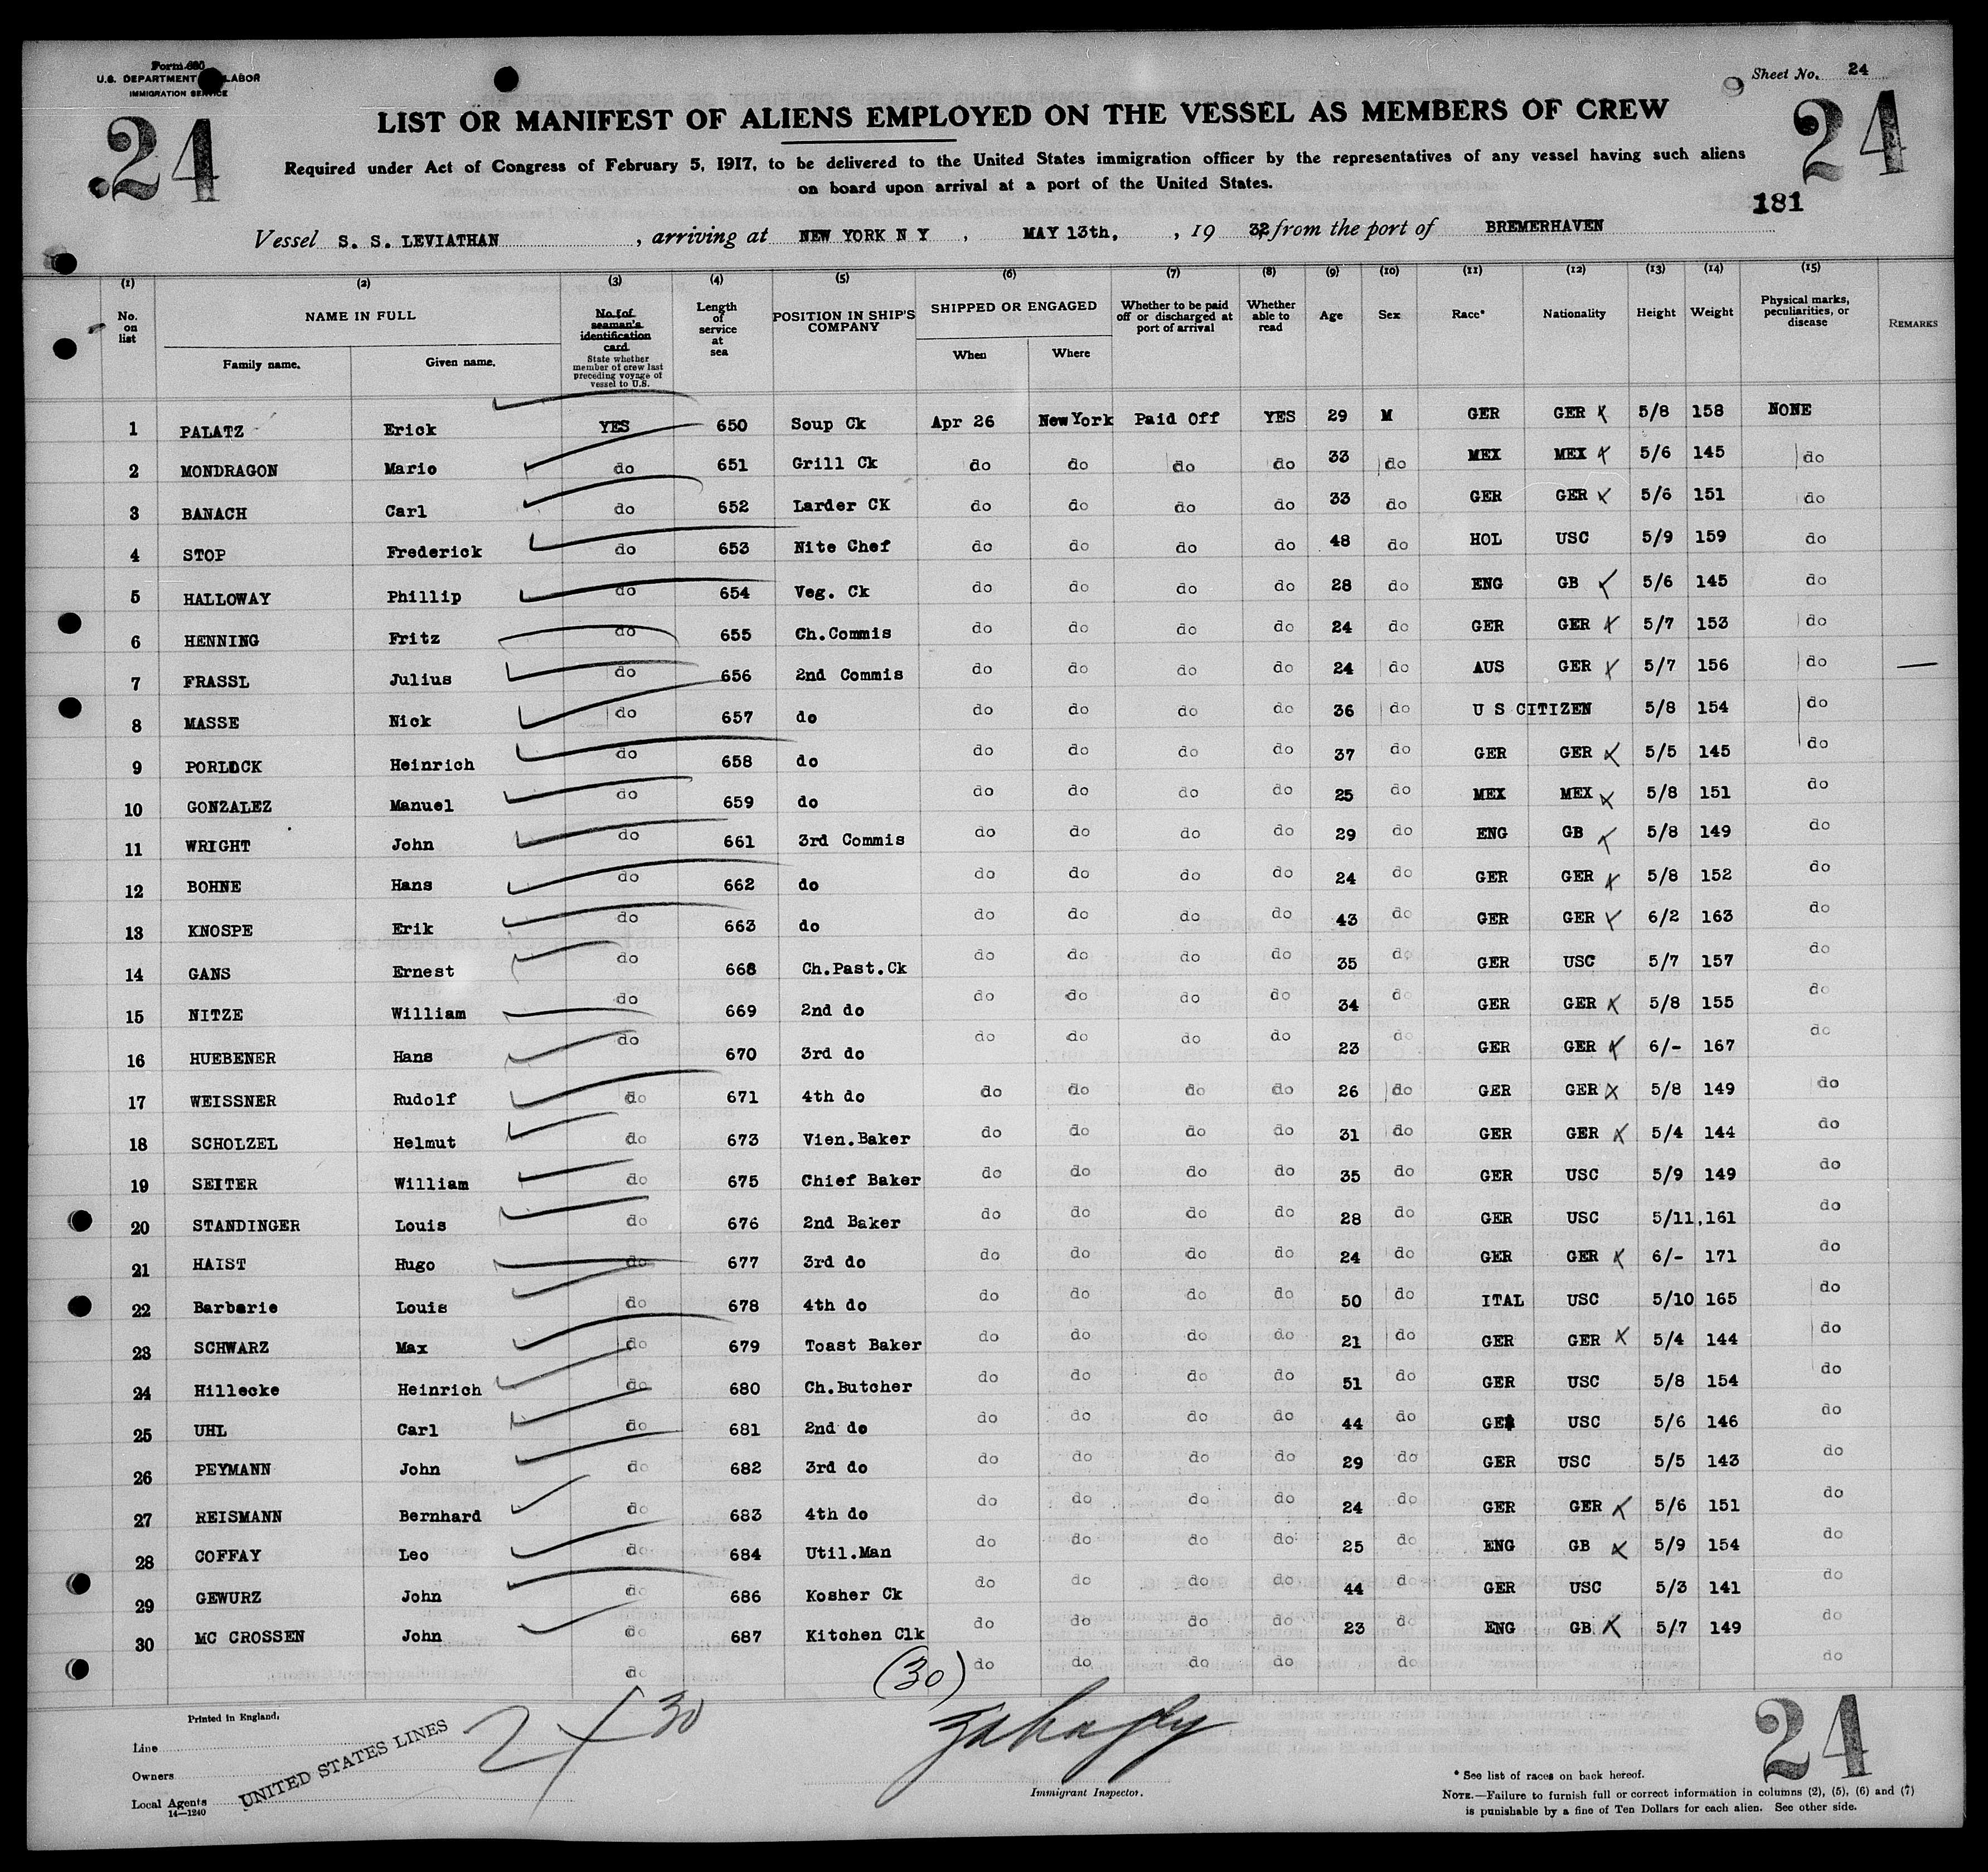 Form 680
U.S. DEPARTMENT LABOR
IMMIGRATION SERVICE
Sheet No. 24
9
24
24
LIST OR MANIFEST OF ALIENS EMPLOYED ON THE VESSEL AS MEMBERS OF CREW
Required under Act of Congress of February 5, 1917, to be delivered to the United States immigration officer by the representatives of any vessel having such aliens
on board upon arrival at a port of the United States.
181
Vessel S. S. LEVIATHAN , arriving at NEW YORK N Y , MAY 13th, , 19 32 from the port of BREMERHAVEN
(1) (2) (3) (4) (5) (6) (7) (8) (9) (10) (11) (12) (13) (14) (15)
No. on list
NAME IN FULL
Family name. Given name.
No. of seaman's identification card
State whether member of crew last preceding voyage of vessel to U.S.
Length of service at sea
POSITION IN SHIP'S COMPANY
SHIPPED OR ENGAGED
When Where
Whether to be paid off or discharged at port of arrival
Whether able to read
Age Sex Race* Nationality Height Weight
Physical marks, peculiarities, or disease
REMARKS
1 PALATZ Erick YES 650 Soup Ck Apr 26 New York Paid Off YES 29 M GER GER 5/8 158 NONE
2 MONDRAGON Mario do 651 Grill Ck do do do do 33 do MEX MEX 5/6 145 do
3 BANACH Carl do 652 Larder CK do do do do 33 do GER GER 5/6 151 do
4 STOP Frederick do 653 Nite Chef do do do do 48 do HOL USC 5/9 159 do
5 HALLOWAY Phillip do 654 Veg. Ck do do do do 28 do ENG GB 5/6 145 do
6 HENNING Fritz do 655 Ch.Commis do do do do 24 do GER GER 5/7 153 do
7 FRASSL Julius do 656 2nd Commis do do do do 24 do AUS GER 5/7 156 do —
8 MASSE Nick do 657 do do do do do 36 do U S CITIZEN 5/8 154 do
9 PORLOCK Heinrich do 658 do do do do do 37 do GER GER 5/5 145 do
10 GONZALEZ Manuel do 659 do do do do do 25 do MEX MEX 5/8 151 do
11 WRIGHT John do 661 3rd Commis do do do do 29 do ENG GB 5/8 149 do
12 BOHNE Hans do 662 do do do do do 24 do GER GER 5/8 152 do
13 KNOSPE Erik do 663 do do do do do 43 do GER GER 6/2 163 do
14 GANS Ernest do 668 Ch.Past.Ck do do do do 35 do GER USC 5/7 157 do
15 NITZE William do 669 2nd do do do do do 34 do GER GER 5/8 155 do
16 HUEBENER Hans do 670 3rd do do do do do 23 do GER GER 6/- 167 do
17 WEISSNER Rudolf do 671 4th do do do do do 26 do GER GER 5/8 149 do
18 SCHOLZEL Helmut do 673 Vien.Baker do do do do 31 do GER GER 5/4 144 do
19 SEITER William do 675 Chief Baker do do do do 35 do GER USC 5/9 149 do
20 STANDINGER Louis do 676 2nd Baker do do do do 28 do GER USC 5/11, 161 do
21 HAIST Hugo do 677 3rd do do do do do 24 do GER GER 6/- 171 do
22 Barbarie Louis do 678 4th do do do do do 50 do ITAL USC 5/10 165 do
23 SCHWARZ Max do 679 Toast Baker do do do do 21 do GER GER 5/4 144 do
24 Hillecke Heinrich do 680 Ch.Butcher do do do do 51 do GER USC 5/8 154 do
25 UHL Carl do 681 2nd do do do do do 44 do GER USC 5/6 146 do
26 PEYMANN John do 682 3rd do do do do do 29 do GER USC 5/5 143 do
27 REISMANN Bernhard do 683 4th do do do do do 24 do GER GER 5/6 151 do
28 COFFAY Leo do 684 Util.Man do do do do 25 do ENG GB 5/9 154 do
29 GEWURZ John do 686 Kosher Ck do do do do 44 do GER USC 5/3 141 do
30 MC CROSSEN John do 687 Kitchen Clk do do do do 23 do ENG GB 5/7 149 do
do (30) do do do do do do
Printed in England.
30
24
Line
Owners UNITED STATES LINES
Local Agents
14—1240
Immigrant Inspector.
* See list of races on back hereof.
NOTE.—Failure to furnish full or correct information in columns (2), (5), (6) and (7)
is punishable by a fine of Ten Dollars for each alien. See other side.